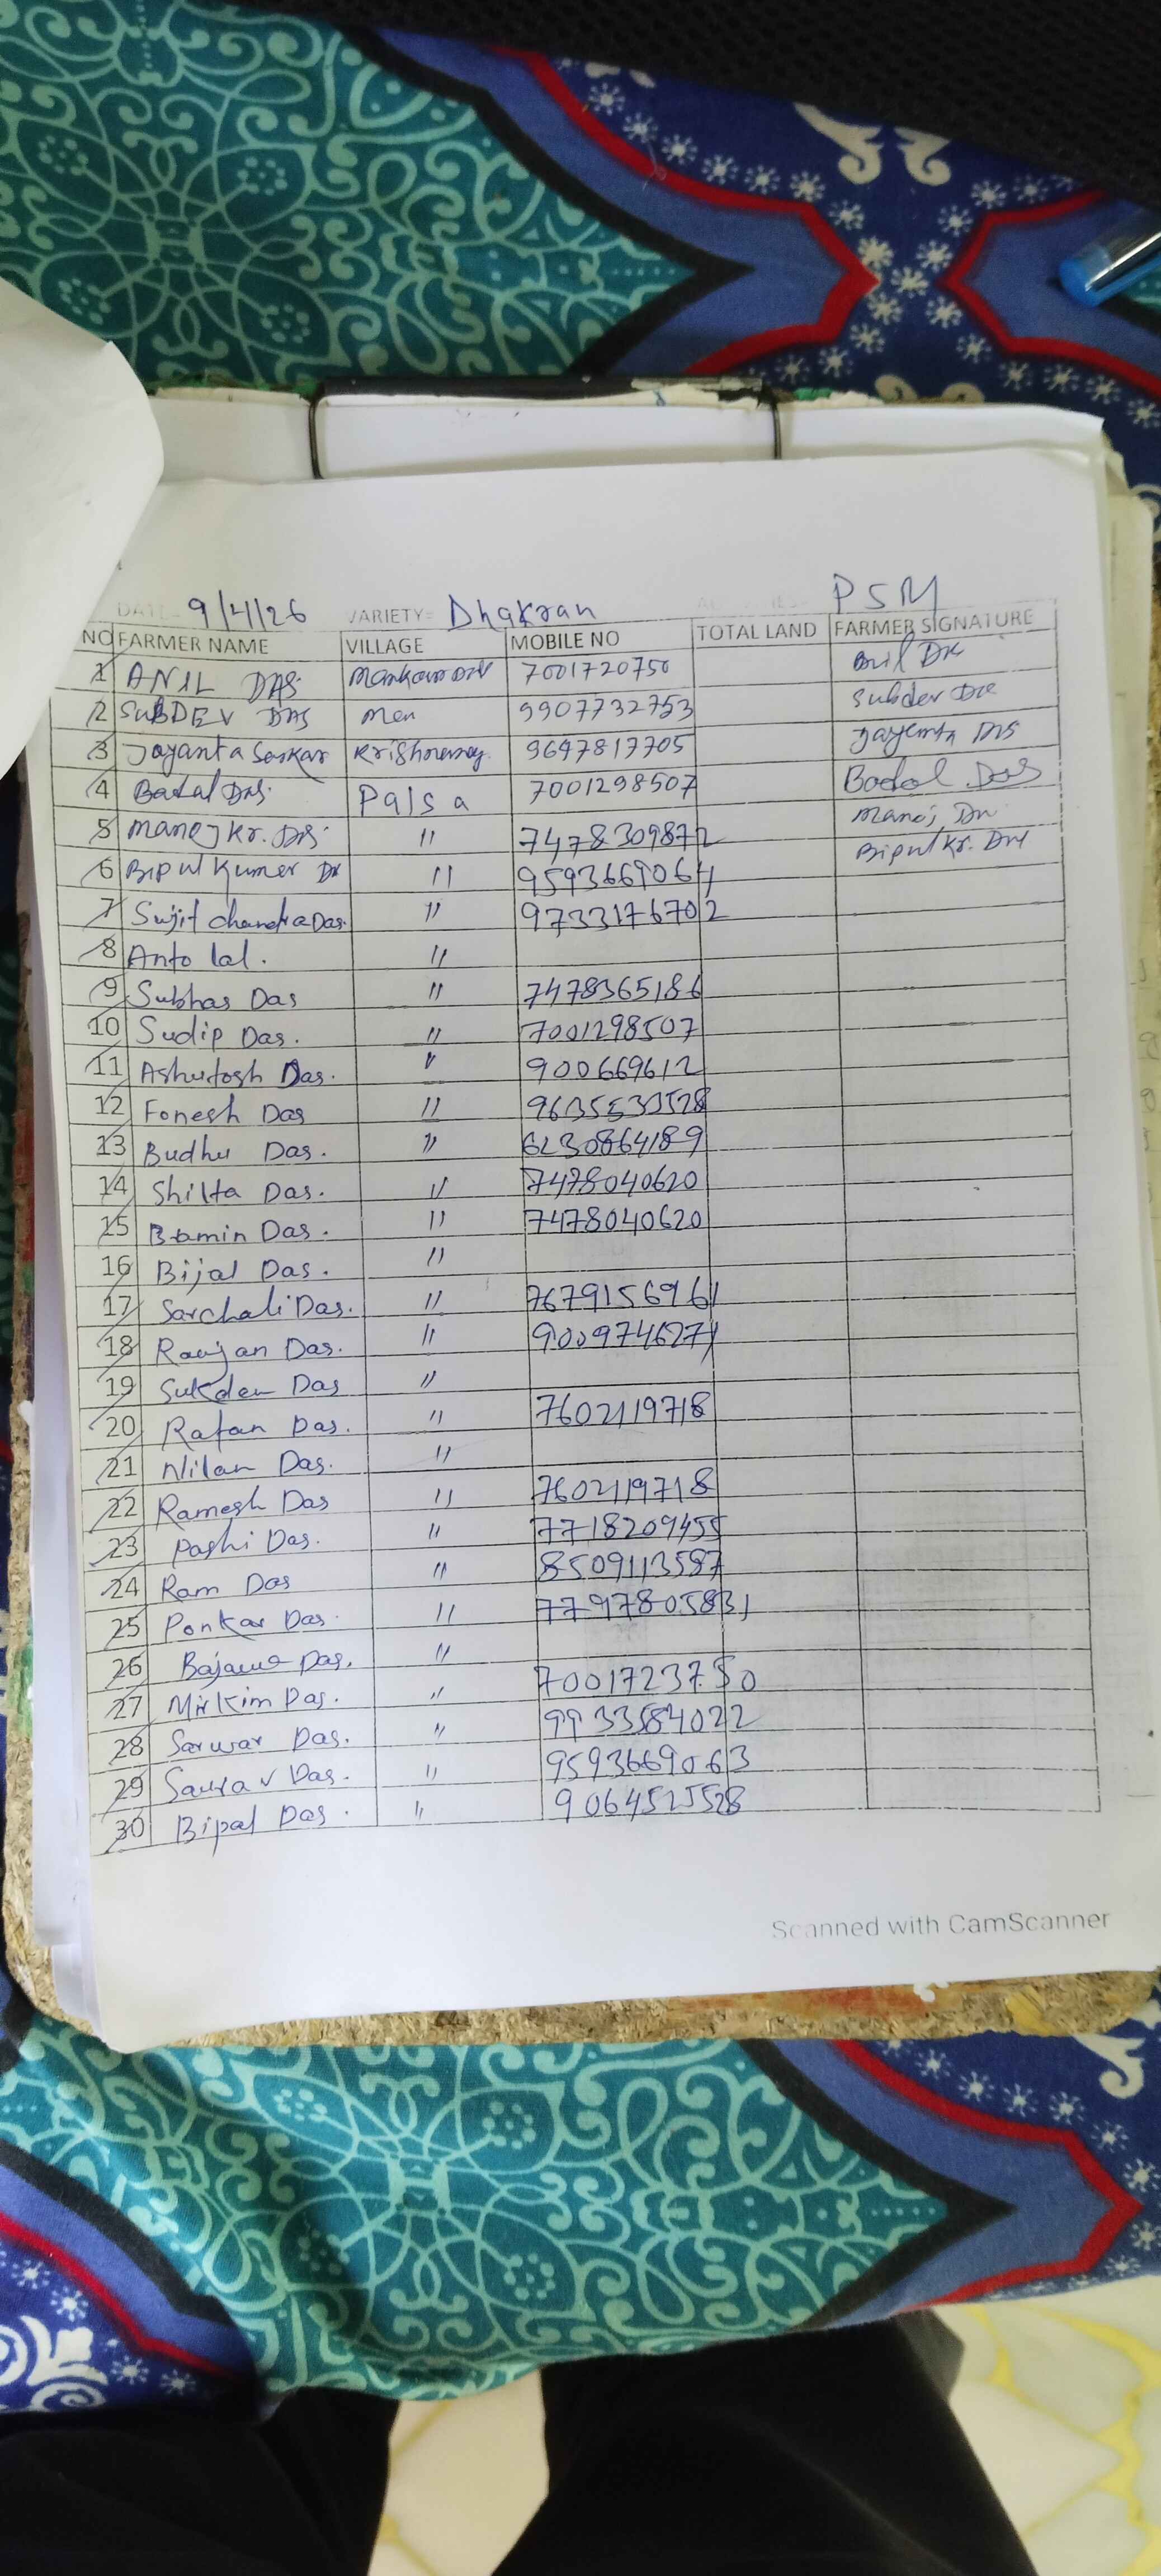 DATE= 9/4/26 VARIETY= Dhakran PSM
NO FARMER NAME VILLAGE MOBILE NO TOTAL LAND FARMER SIGNATURE
1 ANIL DAS 7001720750
2 SUBDEV DAS Men 9907732753 Subdev Das
3 Joyanta Sarkar 9647817705
4 Badal Das. Palsa 7001298507 Badal Das
5 Manoj Kr. Das. " 7478309872 Manoj Das
6 Bipul Kumer Das " 9593669064 Bipul Kr. Das
7 Sujit chandra Das. " 9733176702
8 Anto lal. "
9 Subhas Das " 7478365186
10 Sudip Das. " 7001298507
11 Ashutosh Das. " 900669612
12 Fonesh Das " 9635533528
13 Budhu Das. " 6230864189
14 Shilta Das. " 7478040620
15 Bamin Das. " 7478040620
16 Bijal Das. "
17 Sarchali Das. " 7679156961
18 Ranjan Das. " 9009746271
19 Sukdem Das "
20 Ratan Das. " 7602119718
21 Nilam Das. "
22 Ramesh Das " 7602119718
23 Pashi Das. " 7718209455
24 Ram Das " 8509113587
25 Ponkar Das. " 7797805831
26 Das. "
27 Mirkim Das. " 7001723750
28 Sarwar Das. " 9933584022
29 Saurav Das. " 9593669063
30 Bipal Das. " 9064525528
Scanned with CamScanner